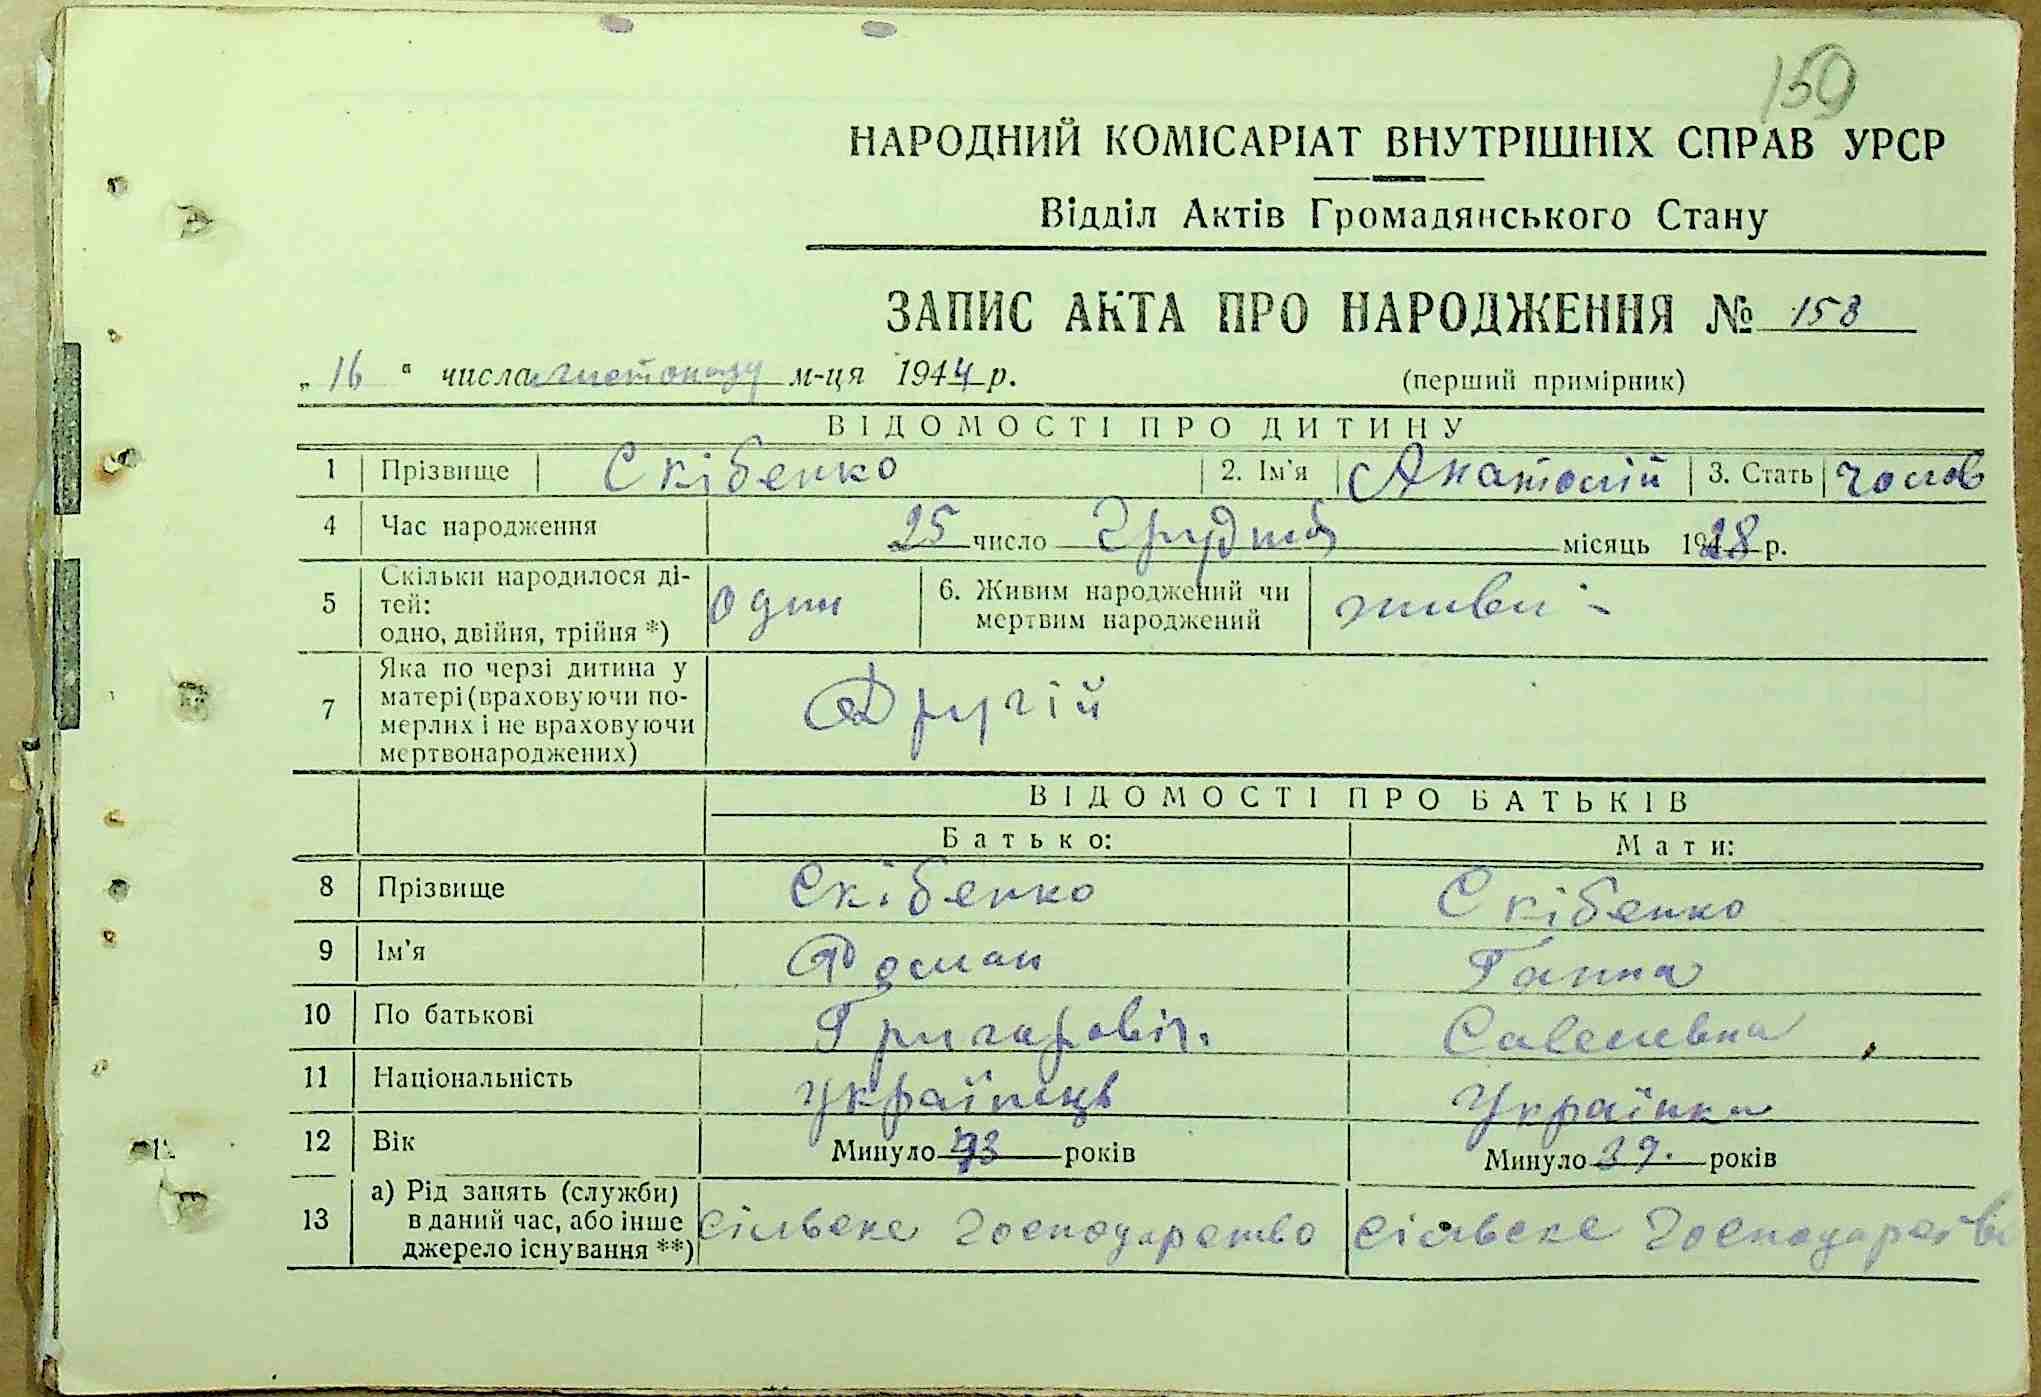 159
НАРОДНИЙ КОМІСАРІАТ ВНУТРІШНІХ СПРАВ УРСР
Відділ Актів Громадянського Стану
ЗАПИС АКТА ПРО НАРОДЖЕННЯ № 158
„16" числа листопаду м-ця 1944 р. (перший примірник)
ВІДОМОСТІ ПРО ДИТИНУ
1 Прізвище Скібенко 2. Ім'я Анатолій 3. Стать чолов
4 Час народження 25 число Грудня місяць 1928 р.
5 Скільки народилося ді-
тей:
одно, двійня, трійня *) один 6. Живим народжений чи
мертвим народжений живи
7 Яка по черзі дитина у
матері (враховуючи по-
мерлих і не враховуючи
мертвонароджених) Другій
ВІДОМОСТІ ПРО БАТЬКІВ
Батько: Мати:
8 Прізвище Скібенко Скібенко
9 Ім'я Роман Ганна
10 По батькові Григоровіч. Савелевна
11 Національність Українець Українка
12 Вік Минуло 43 років Минуло 39. років
13 а) Рід занять (служби)
в даний час, або інше
джерело існування **) сільське господарство сільске господарство